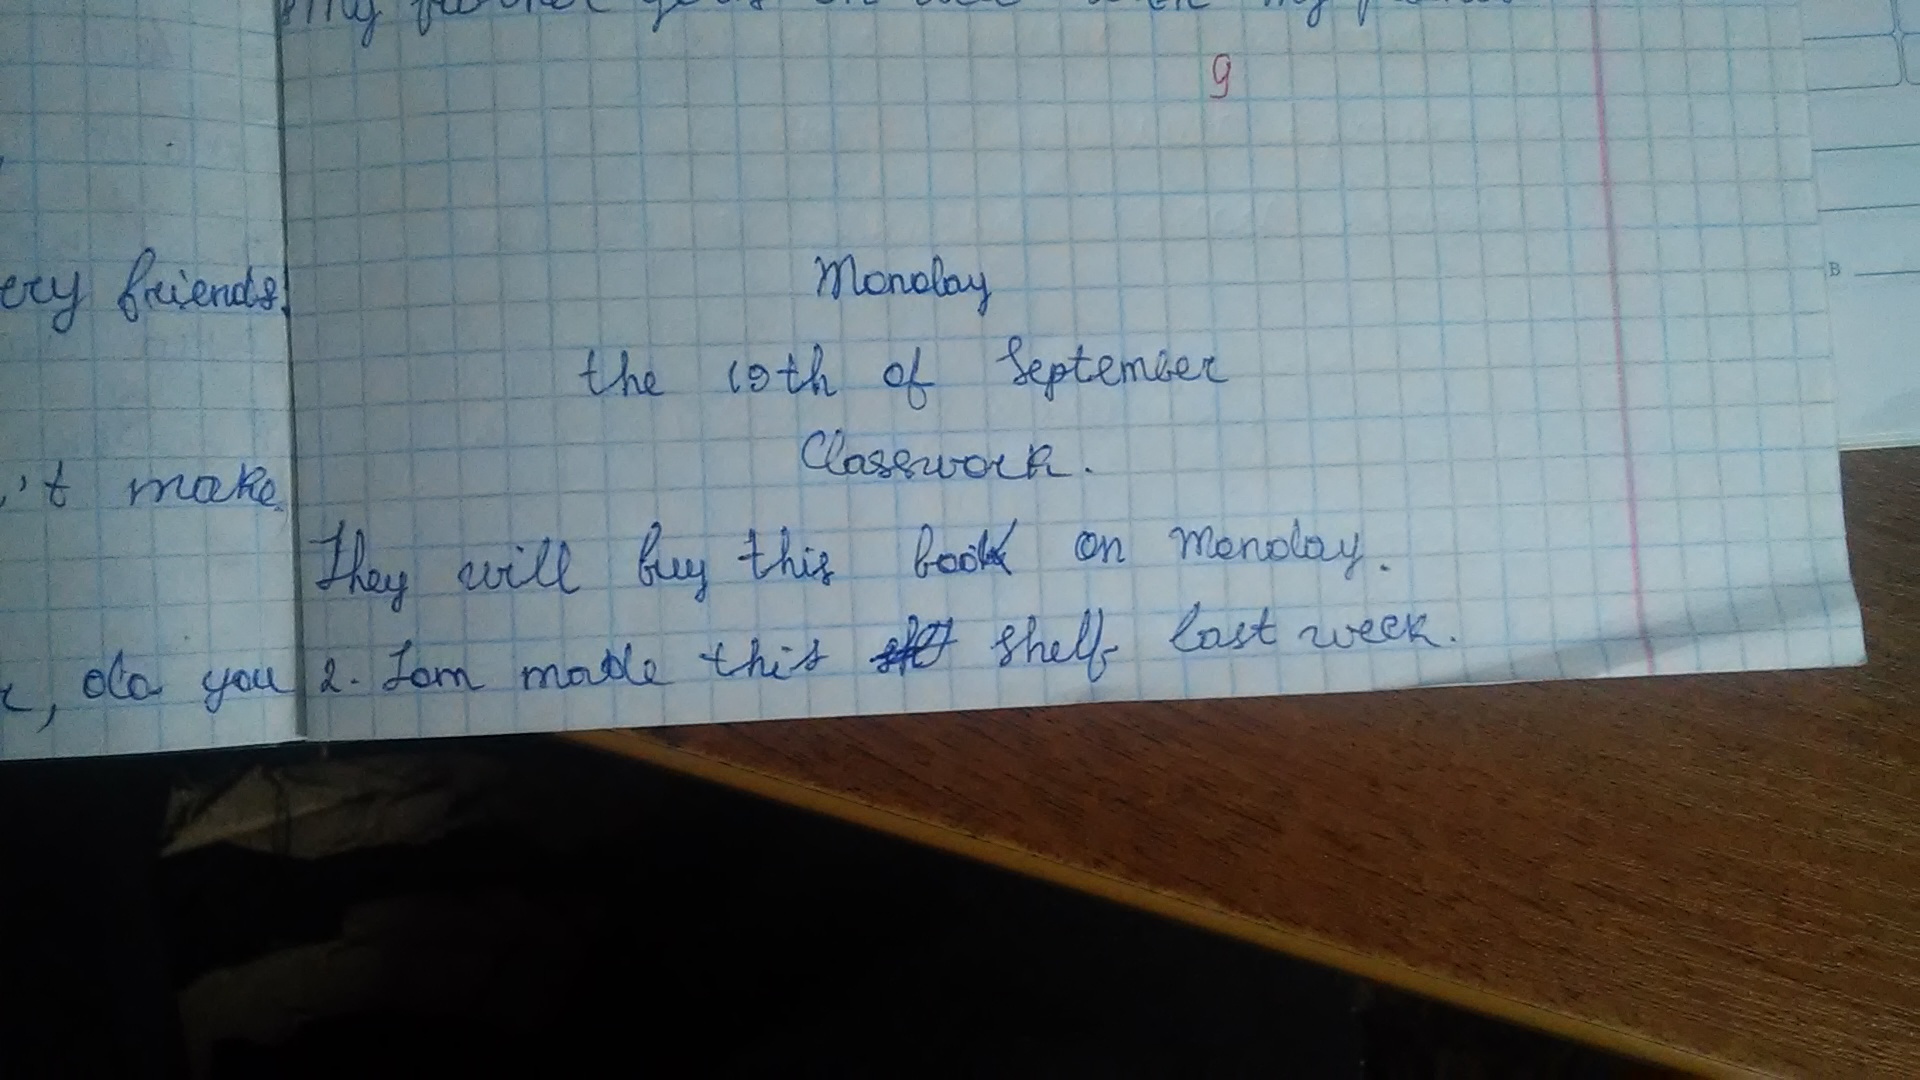 my
9
ery friends.
Monday
the 10th of September
Classwork.
't make
They will buy this book on Monday.
, do you
2. Iam made this shelf last week.
B